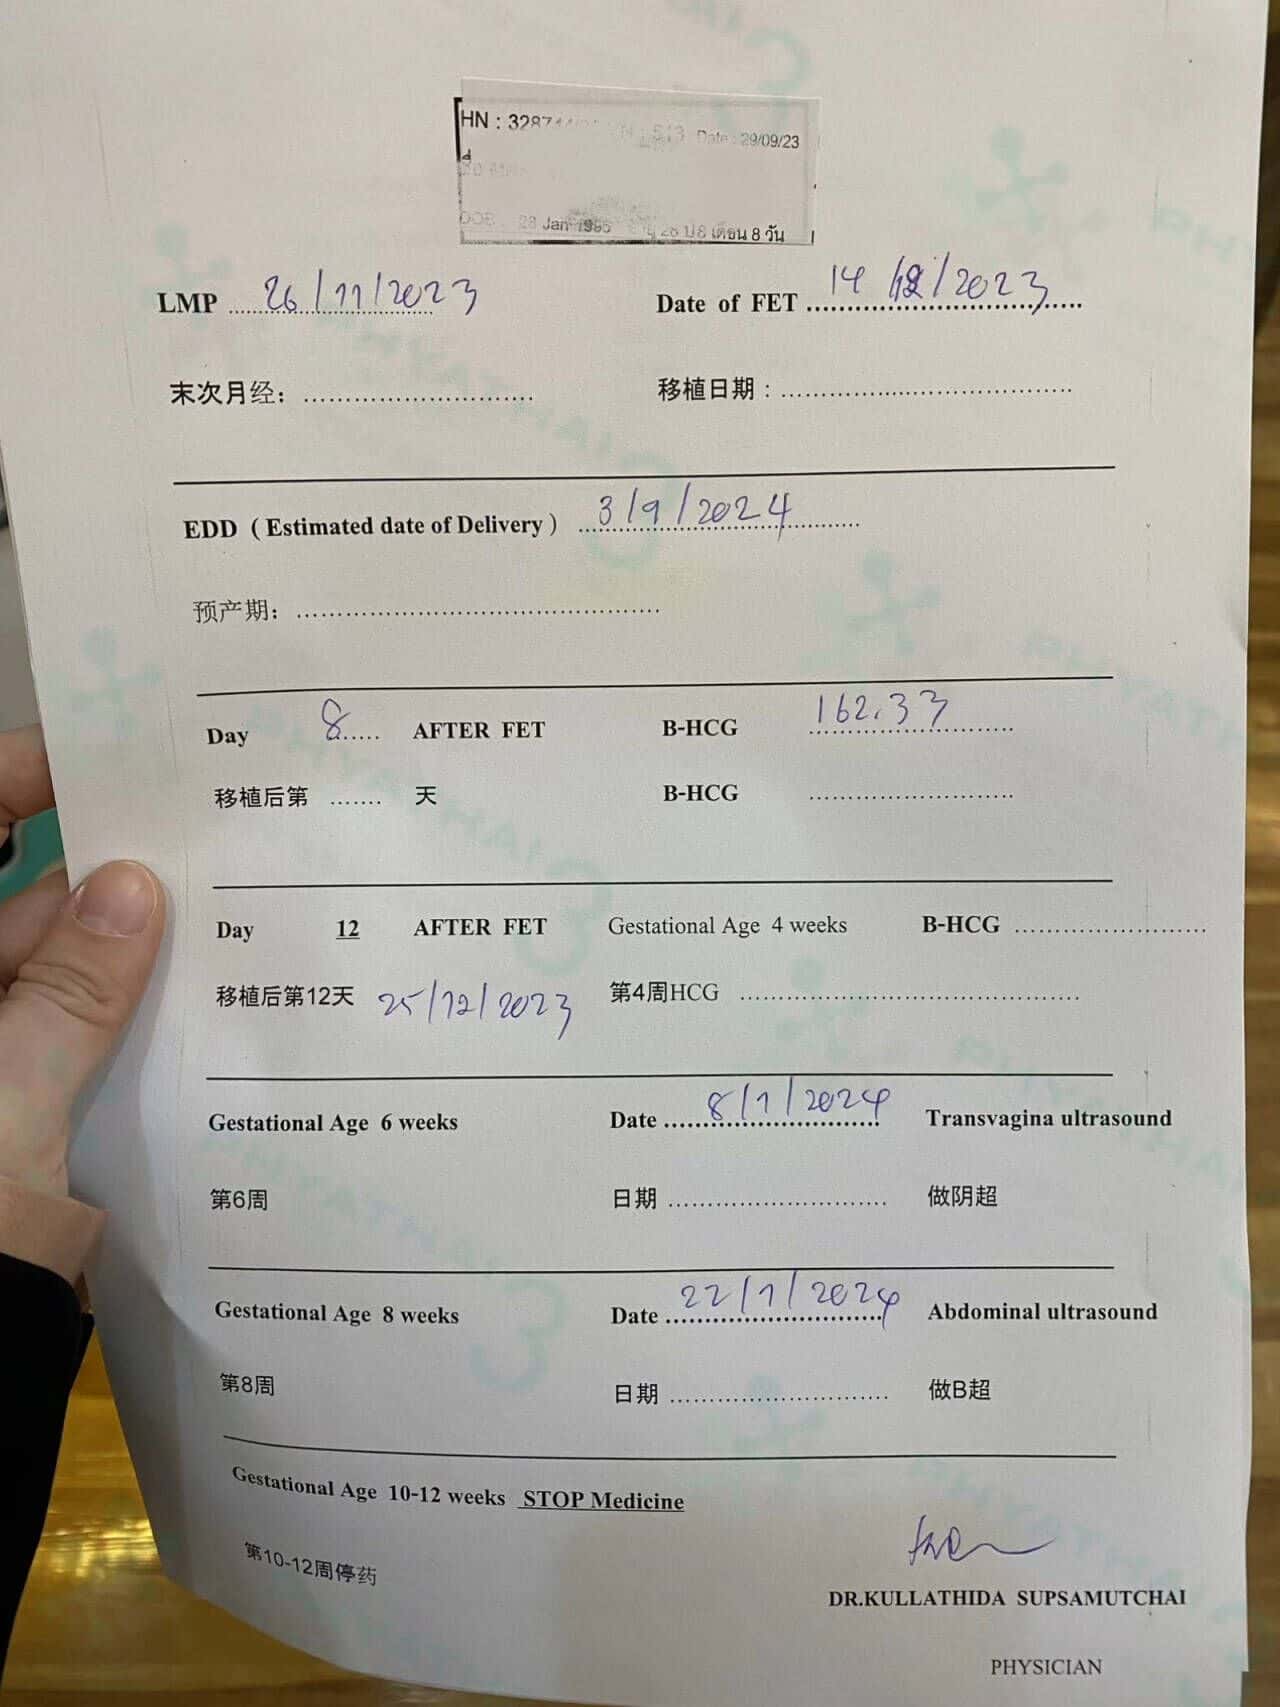 HN : 32874 Date : 29/09/23
28 Jan 1995 28 ปี 8 เดือน 8 วัน
LMP 26/11/2023 Date of FET 14/12/2023
末次月经: 移植日期 :
EDD ( Estimated date of Delivery ) 3/9/2024
预产期:
Day 8 AFTER FET B-HCG 162.33
移植后第 天 B-HCG
Day 12 AFTER FET Gestational Age 4 weeks B-HCG
移植后第12天 25/12/2023 第4周HCG
Gestational Age 6 weeks Date 8/1/2024 Transvagina ultrasound
第6周 日期 做阴超
Gestational Age 8 weeks Date 22/1/2024 Abdominal ultrasound
第8周 日期 做B超
Gestational Age 10-12 weeks STOP Medicine
第10-12周停药
DR.KULLATHIDA SUPSAMUTCHAI
PHYSICIAN